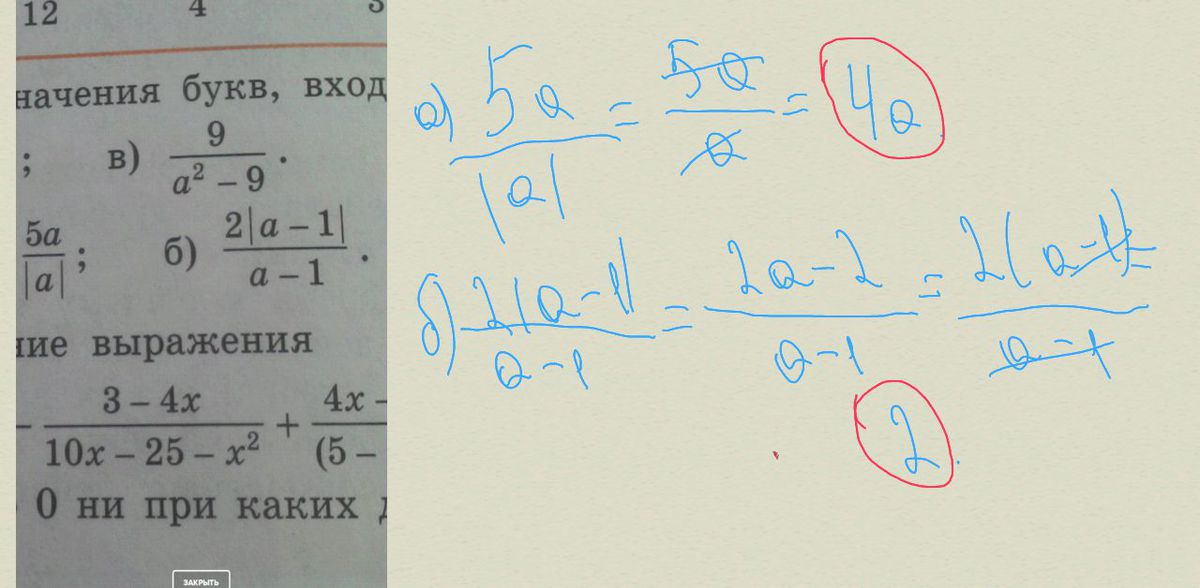 12 4 3
начения букв, вход
; в) 9/(a² – 9).
5a/|a|; б) 2|a – 1|/(a – 1).
ние выражения
– (3 – 4x)/(10x – 25 – x²) + 4x –/(5 –
0 ни при каких
ЗАКРЫТЬ
а) 5a/|a| = 5a/a = 4a
б) 2|a-1|/(a-1) = (2a-2)/(a-1) = 2(a-1)/(a-1) =
2.